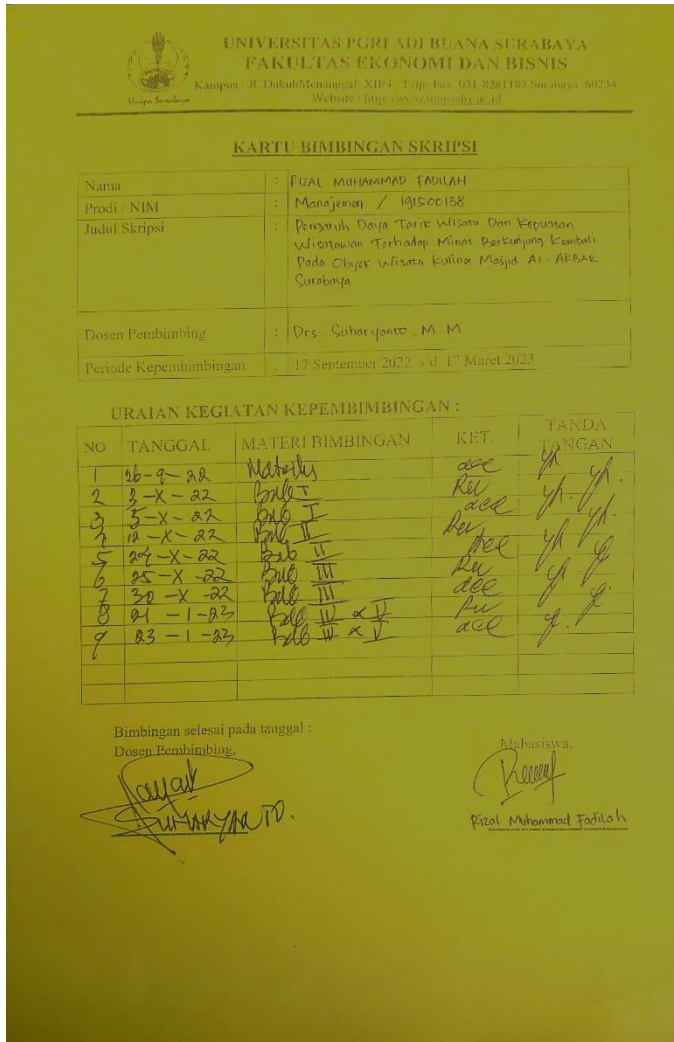 UNIVERSITAS PGRI ADI BUANA SURABAYA
FAKULTAS EKONOMI DAN BISNIS
Kampus : Jl. DukuhMenanggal XII/4 , Telp-Fax. 031-8281183 Surabaya -60234
Website :
Unipa Surabaya
KARTU BIMBINGAN SKRIPSI
Nama : RIZAL MUHAMMAD FADILAH
Prodi / NIM : Manajemen / 191500138
Judul Skripsi : Pengaruh Daya Tarik Wisata Dan Kepuasan
Wisatawan Terhadap Minat Berkunjung Kembali
Pada Obyek Wisata Kuliner Masjid Al-AKBAR
Surabaya
Dosen Pembimbing : Drs. Suharyanto, M.M
Periode Kepembimbingan : 17 September 2022 s/d 17 Maret 2023
URAIAN KEGIATAN KEPEMBIMBINGAN :
NO TANGGAL MATERI BIMBINGAN KET. TANDA TANGAN
1 26-9-22 acc
2 3-X-22 Bab I Rev
3 5-X-22 Bab I acc
4 12-X-22 Bab II Rev
5 24-X-22 Bab II acc
6 25-X-22 Bab III Rev
7 30-X-22 Bab III acc
8 21-1-23 Bab IV & V Rev
9 23-1-23 Bab IV & V acc
Bimbingan selesai pada tanggal :
Dosen Pembimbing, Mahasiswa,
SUHARYANTO.
Rizal Muhammad Fadilah